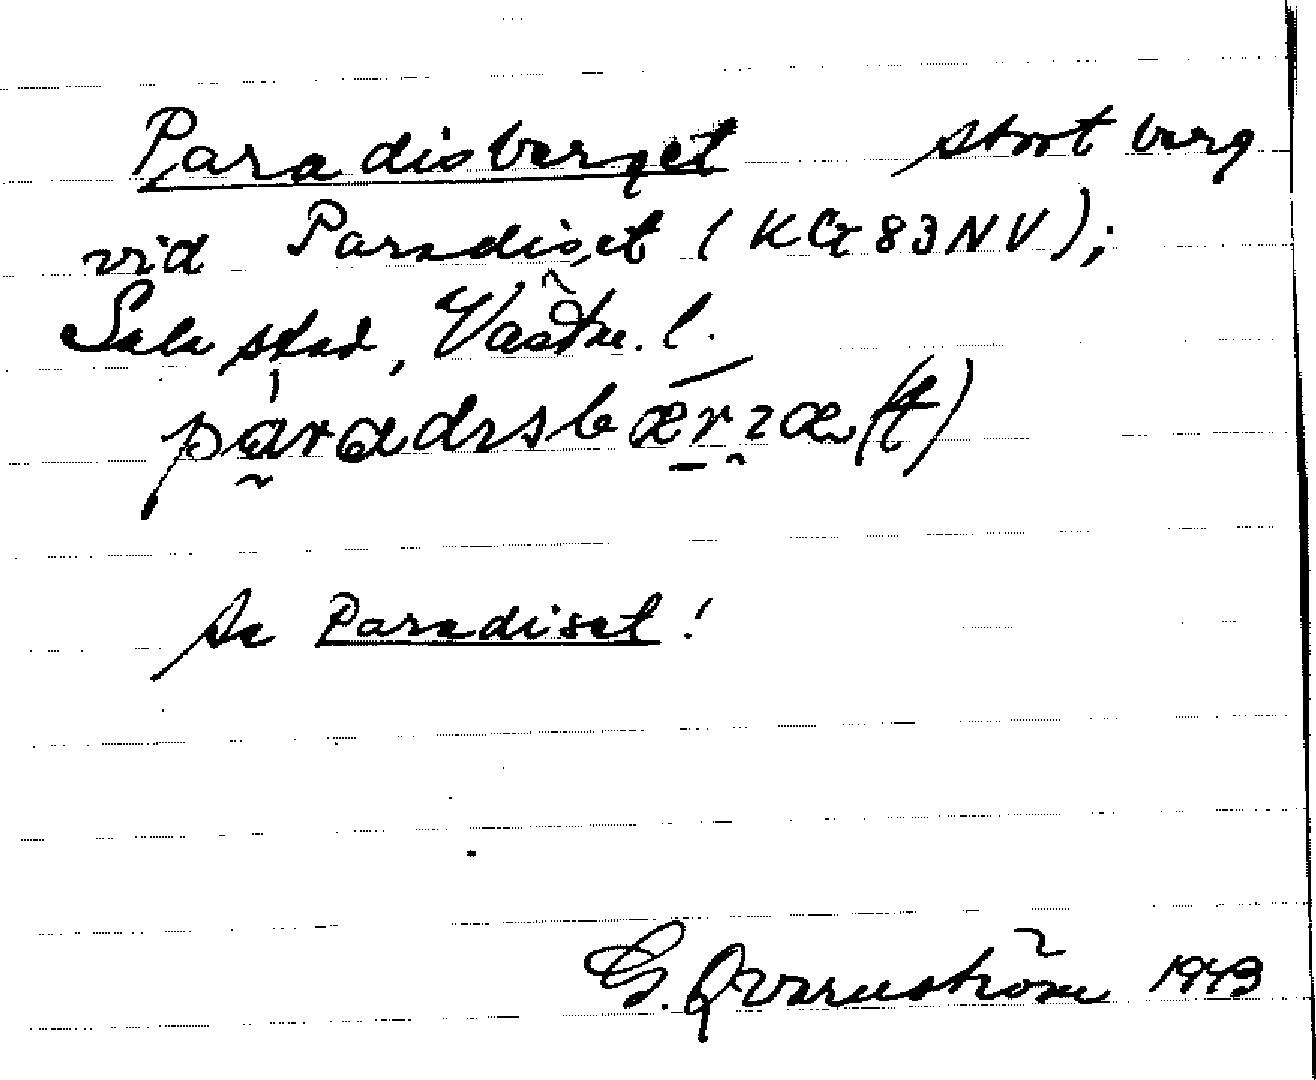 Paradisberget stort berg
vid Paradiset (KG 83NV);
Sala stad, Västm. l.
påradisbærjæ(t)
Se Paradiset!
G. Qvarnström 1943